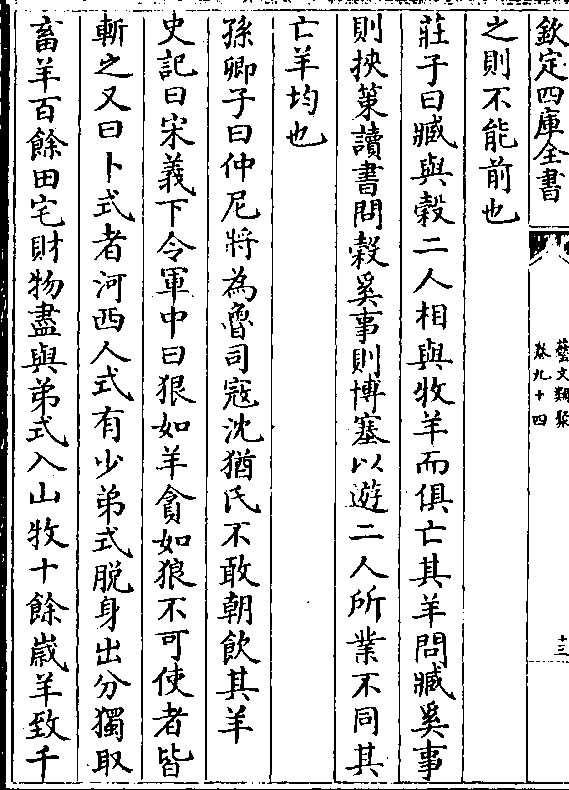 欽定四庫全書
藝文類聚
卷九十四
十三
之則不能前也
莊子曰臧與穀二人相與牧羊而俱亡其羊問臧奚事
則挾策讀書問穀奚事則博塞以遊二人所業不同其
亡羊均也
孫卿子曰仲尼將為魯司寇沈猶氏不敢朝飲其羊
史記曰宋義下令軍中曰狠如羊貪如狼不可使者皆
斬之又曰卜式者河西人式有少弟式脱身出分獨取
畜羊百餘田宅財物盡與弟式入山牧十餘嵗羊致千